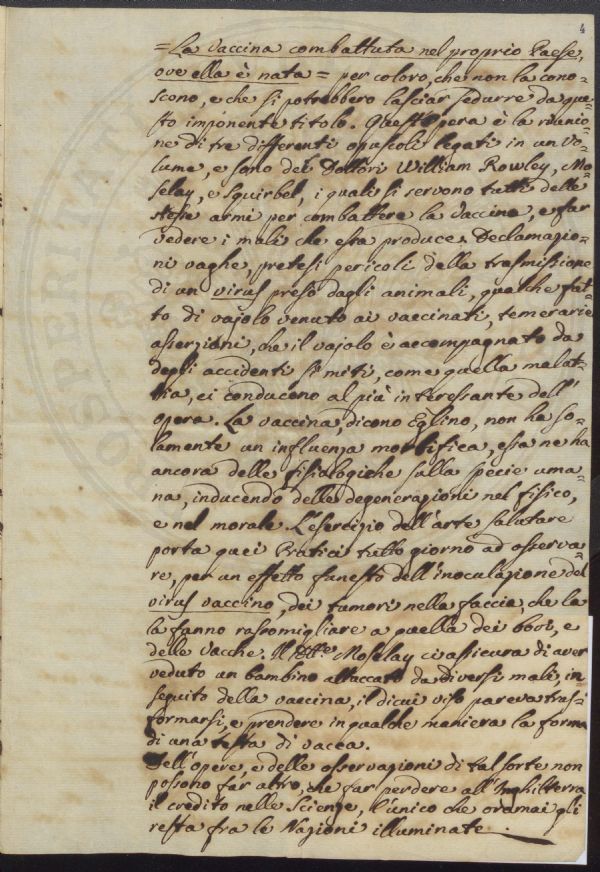 4
= La vaccina combattuta nel proprio Paese,
ove ella è nata = per coloro, che non la cono-
scono, e che si potrebbero lasciar sedurre da que-
sto imponente titolo. Quest'opera è la riunio-
ne di tre differenti opuscoli legati in un vo-
lume, e sono dei Dottori William Rowley, Mo-
selay, e Squirbel, i quali si servono tutti delle
stesse armi per combattere la Vaccina, e far
vedere i mali che essa produce. Declamazio-
ni vaghe, pretesi pericoli della trasmissione
di un virus preso dagli animali, qualche fat-
to di vajolo venuto ai vaccinati, temerarie
asserzioni, che il vajolo è accompagnato da
degli accidenti sì miti, come quella malat-
tia, ci conducono al più interessante dell'
opera. La vaccina, dicono Eglino, non ha so-
lamente un influenza morbifica, essa ne ha
ancora delle fisiologiche sulla specie uma-
na, inducendo delle degenerazioni nel fisico,
e nel morale. L'esercizio dell'arte salutare
porta quei Pratici tutto giorno ad osserva-
re, per un effetto funesto dell'inoculazione del
virus vaccino, dei tumori nella faccia, che la
la fanno rassomigliare a quella dei bovi, e
delle vacche. Il Dott.e Moselay ci assicura di aver
veduto un bambino attaccato da diversi mali, in
seguito della vaccina, il di cui viso pareva tras-
formarsi, e prendere in qualche maniera la forma
di una testa di vacca.
Dell'opere, e delle osservazioni di tal sorte non
possono far altro, che far perdere all'Inghilterra
il credito nelle Scienze, l'unico che oramai gli
resta fra le Nazioni illuminate.